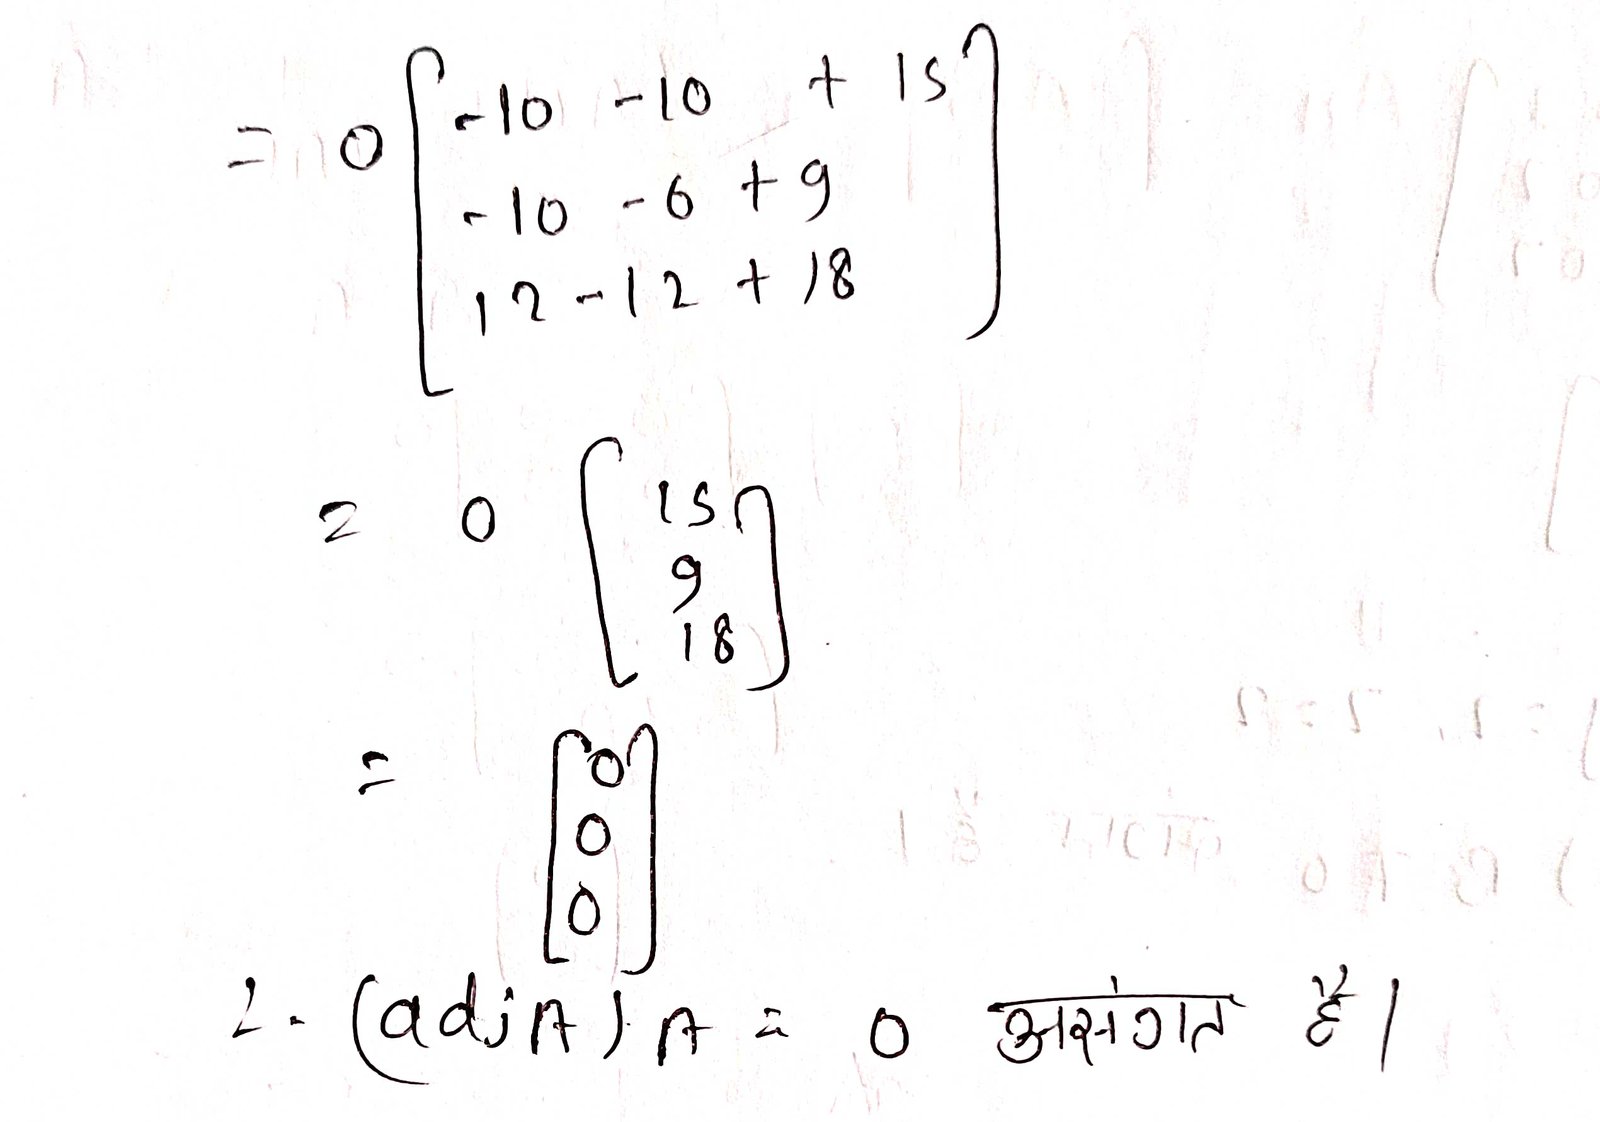 = 0 [ -10 -10 + 15 ]
-10 -6 + 9
12 - 12 + 18
= 0 [ 15 ]
9
18
= [ 0 ]
0
0
2. (adj A) A = 0 असंगत है।